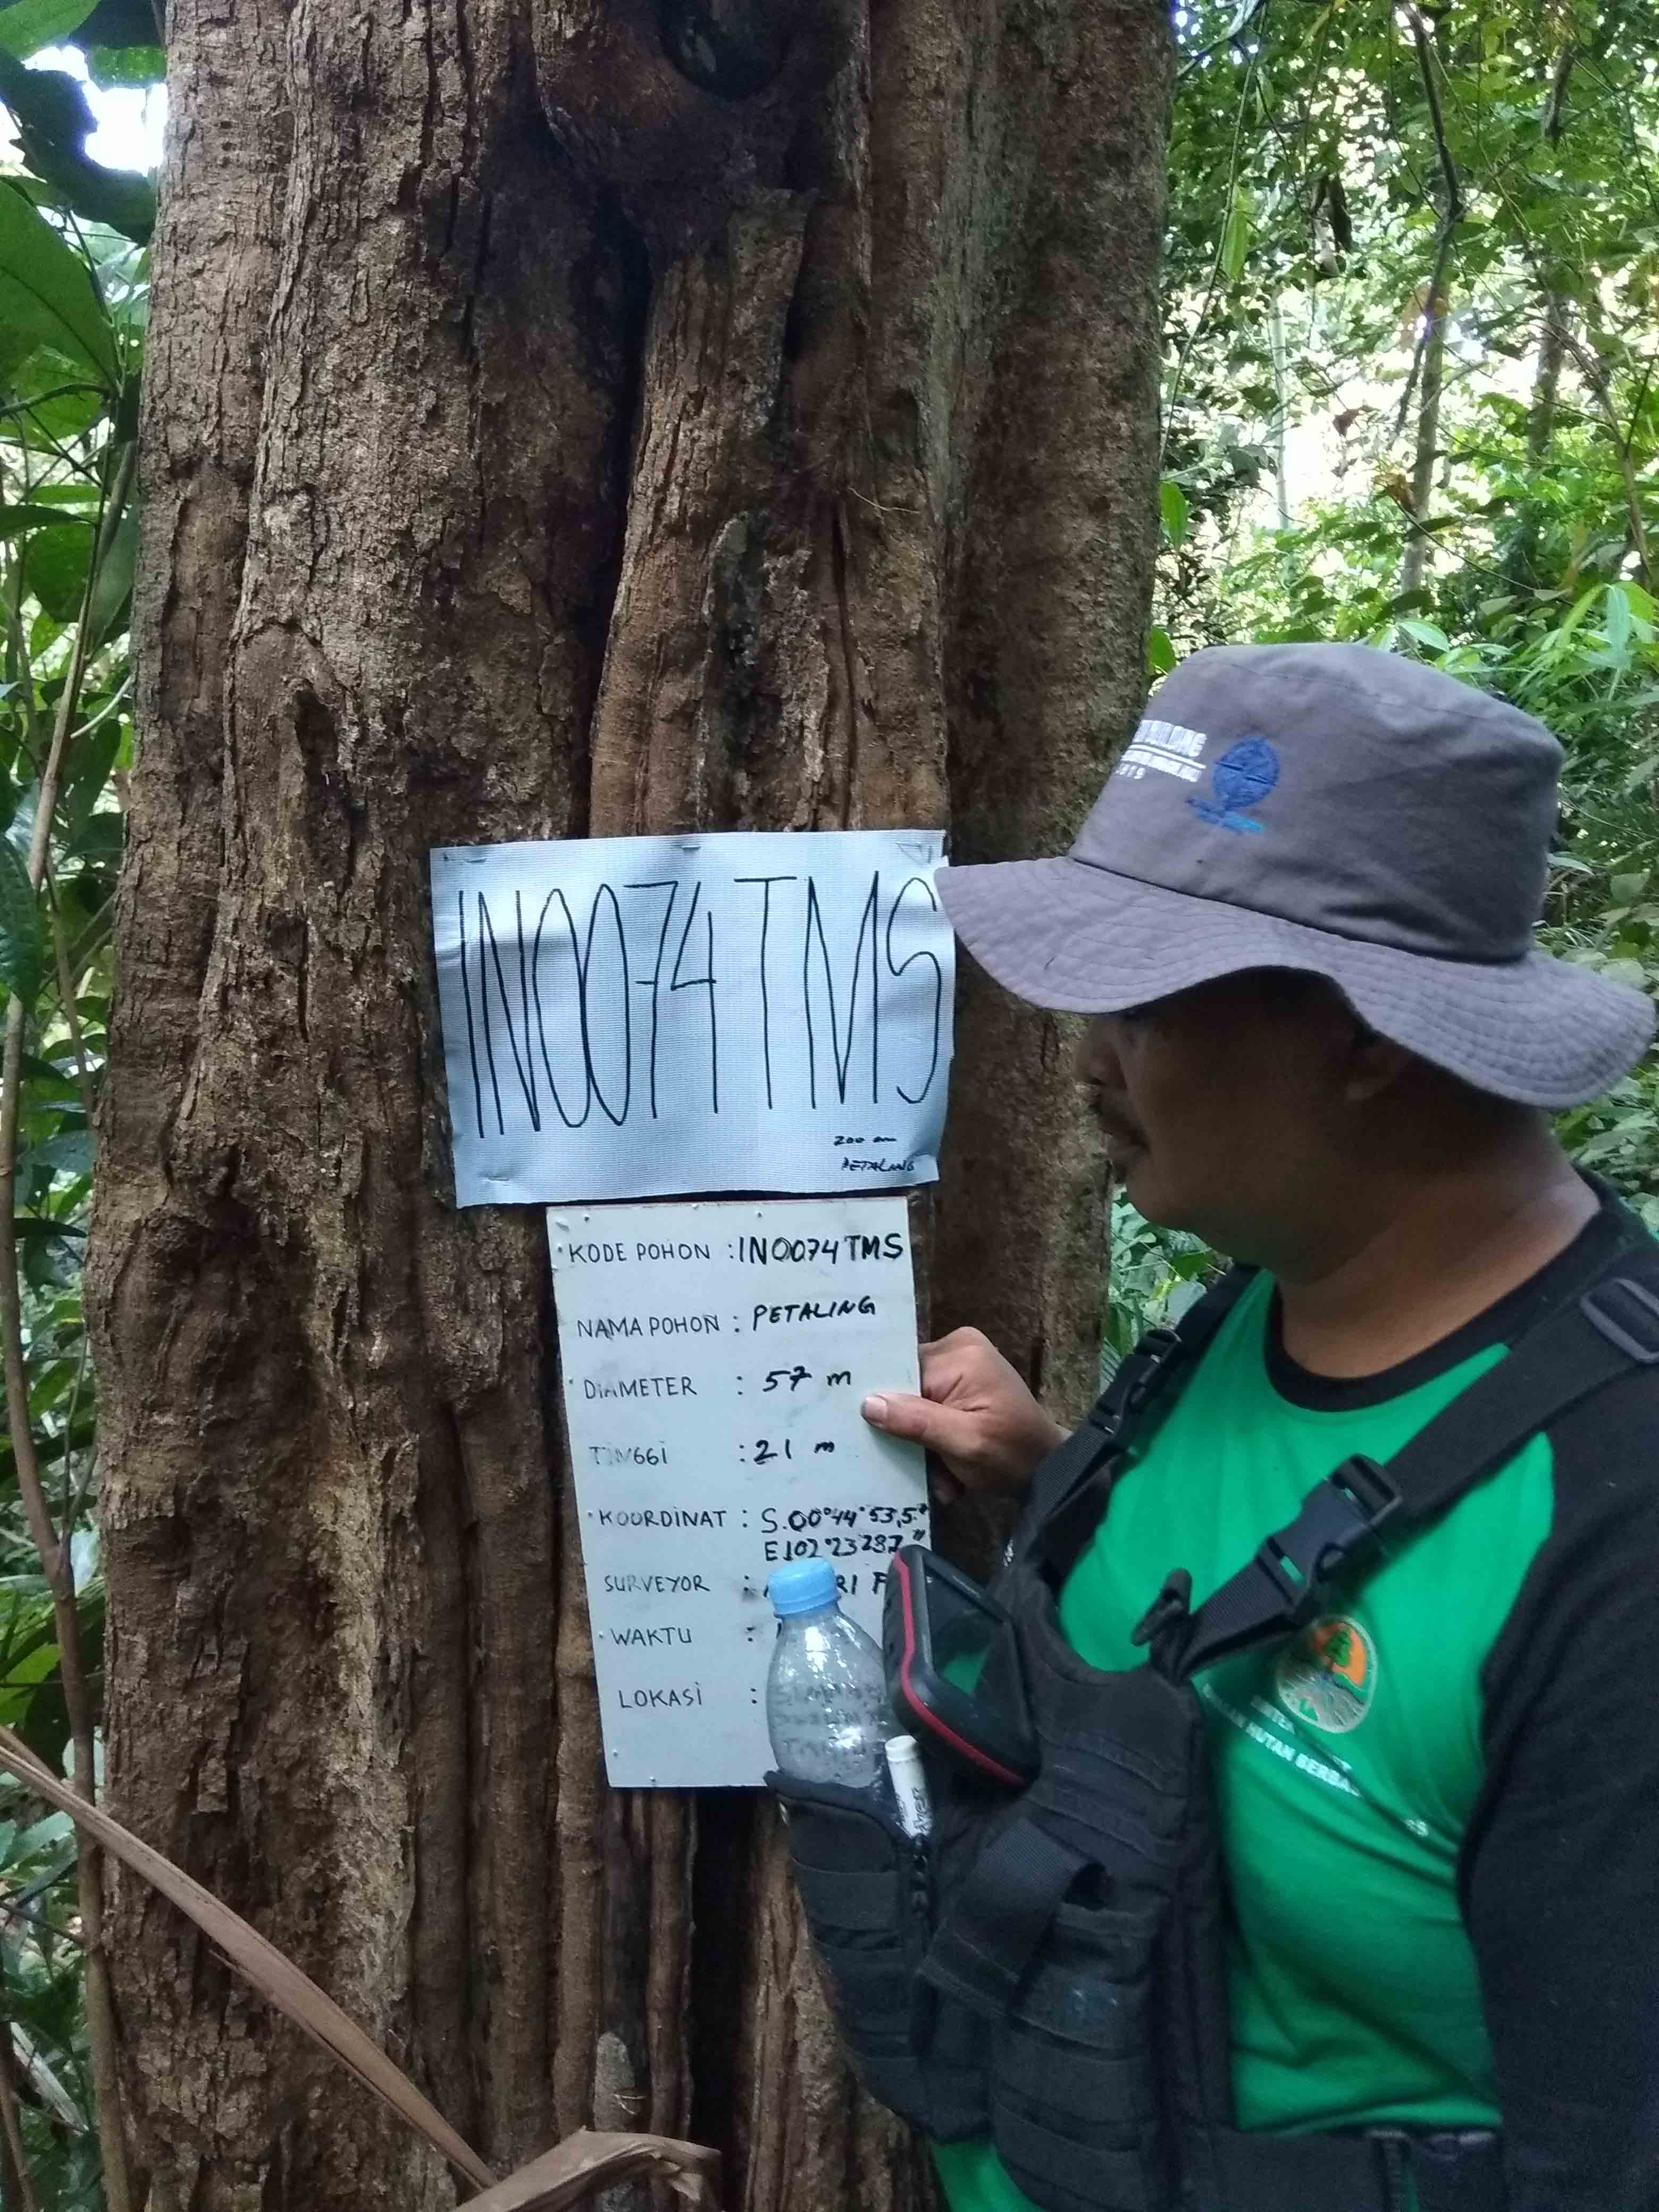 IN0074TMS
200 cm
PETALING
KODE POHON : IN0074TMS
NAMA POHON : PETALING
DIAMETER : 57 m
TINGGI : 21 m
KOORDINAT : S.00°44'53,5"
E102°23'287"
SURVEYOR :
WAKTU :
LOKASI :